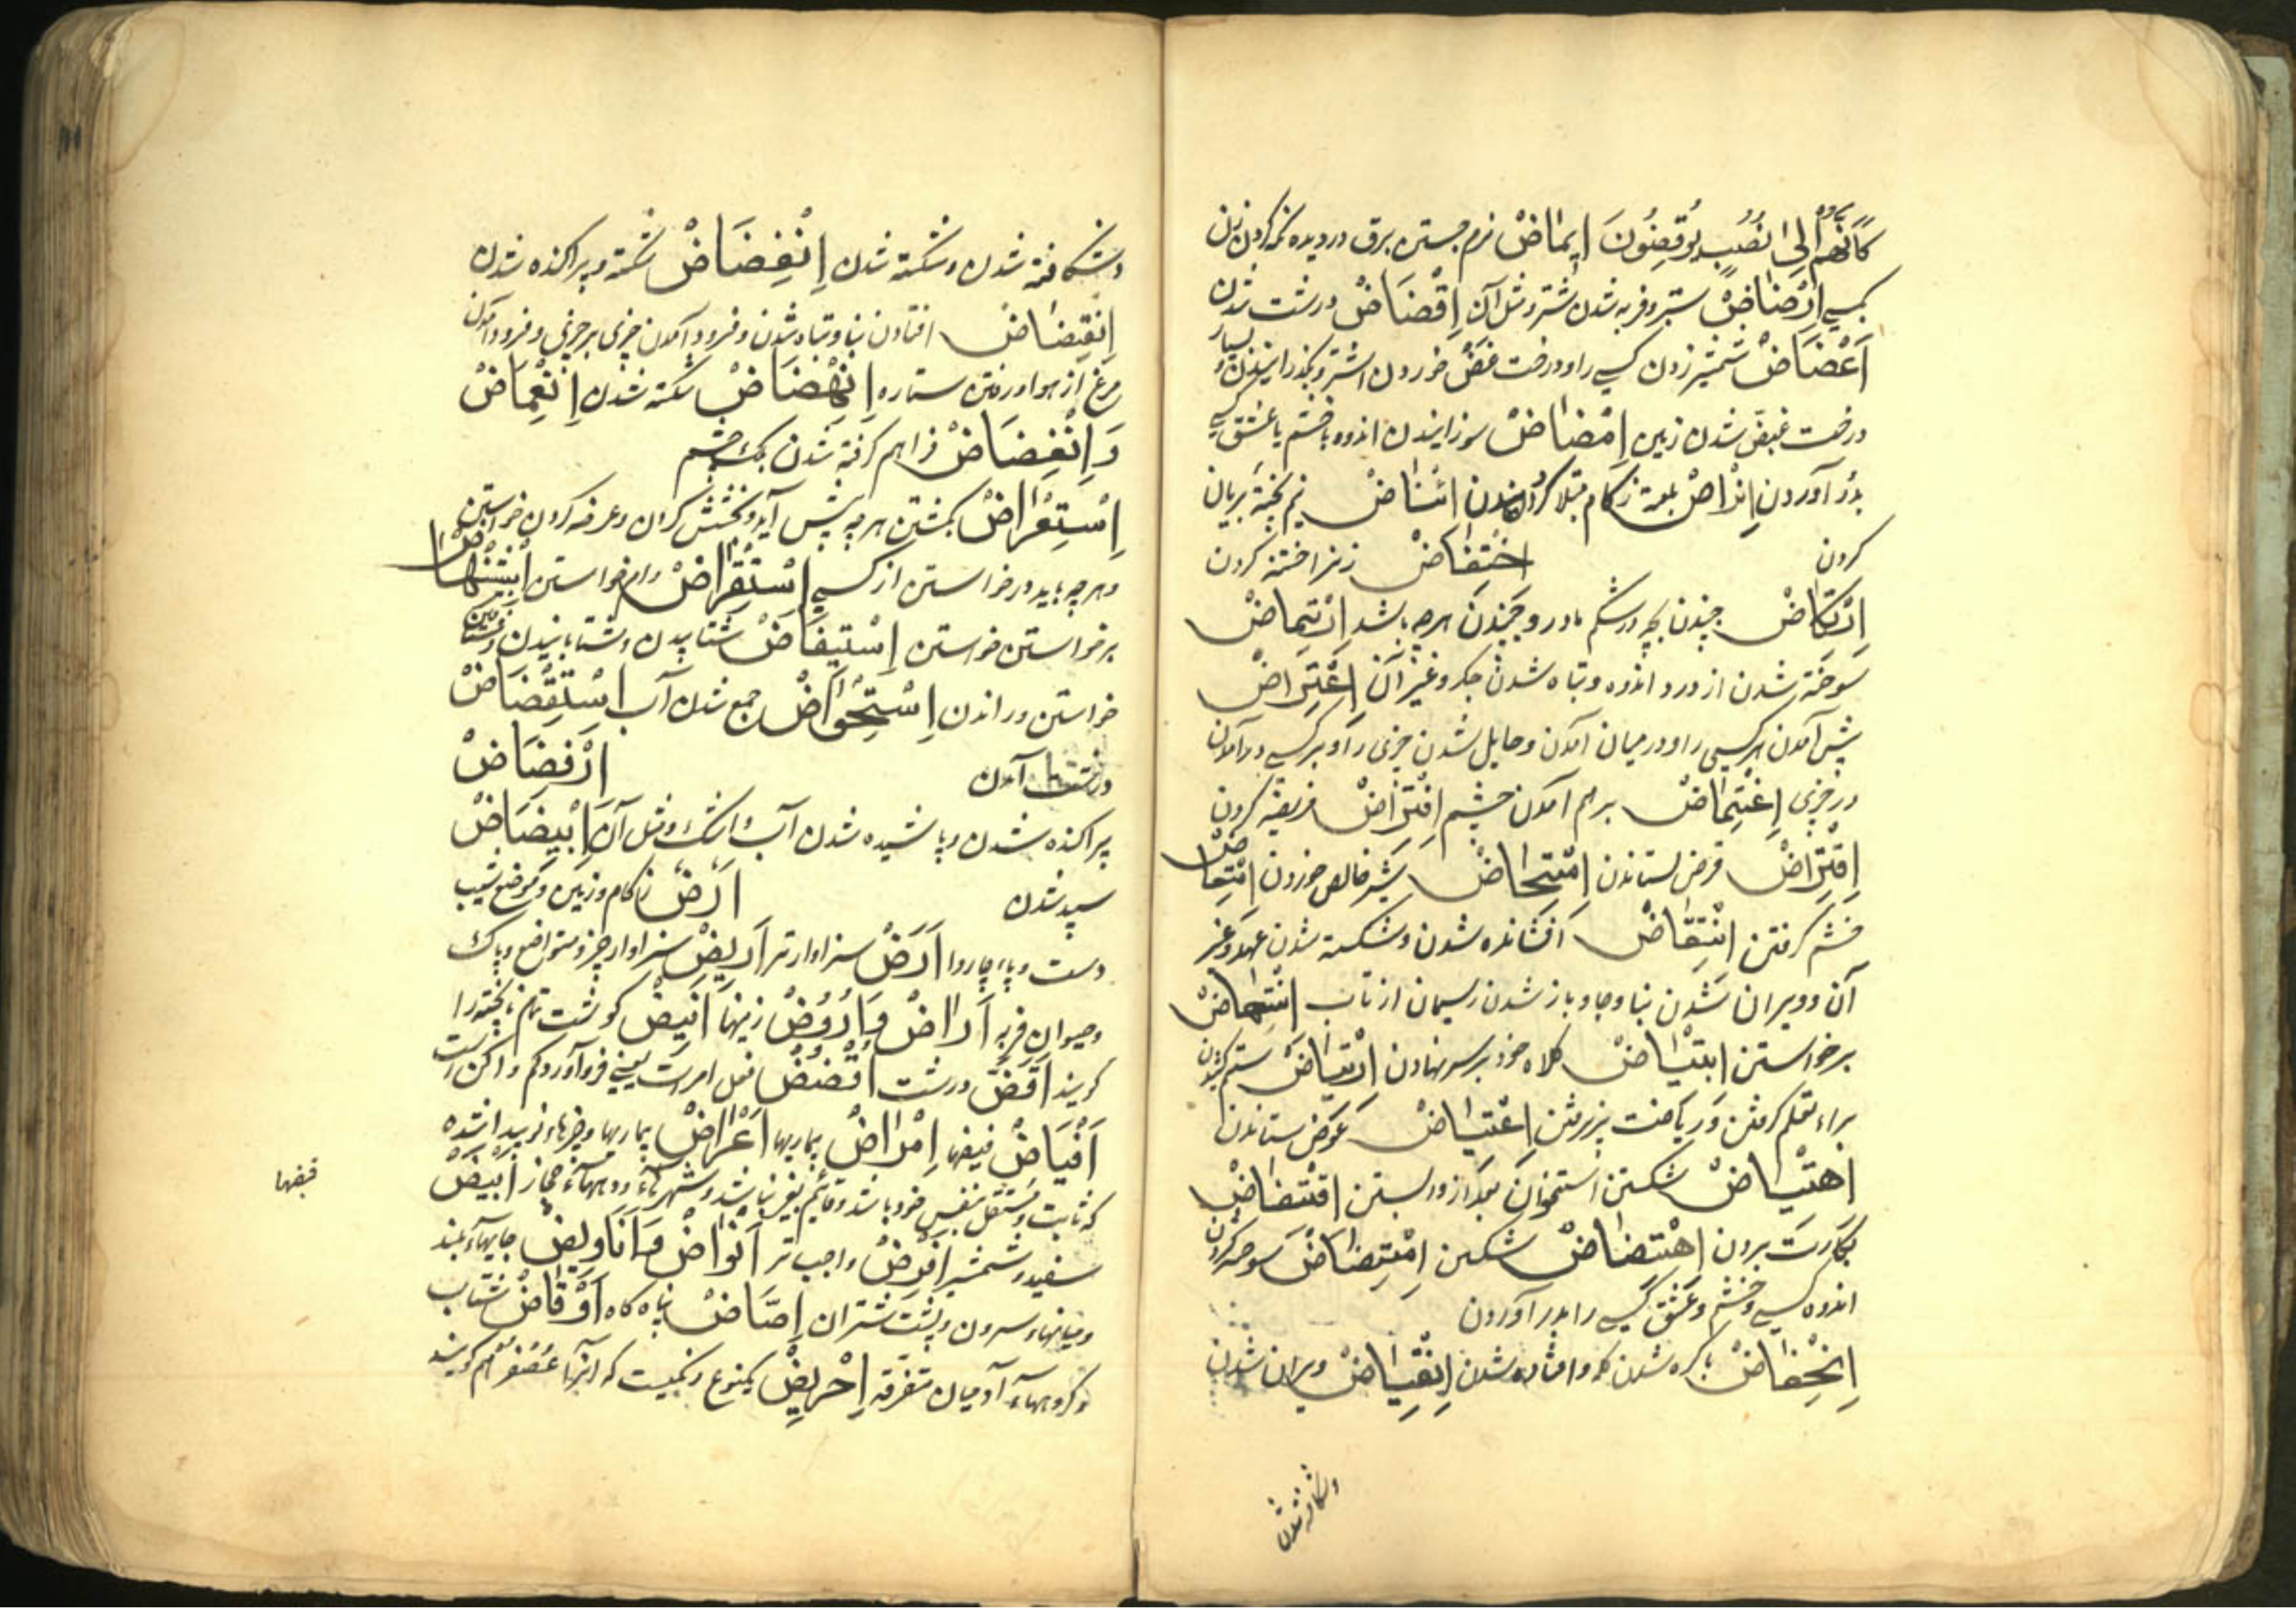 كأنهم إلى نصب يوفضون إيماض نرم جستن برق و دزدیده نگه کردن زن
بکسی إرضاض ستبر و فربه شدن شتر و مثل آن إقضاض درشت شدن
إعضاض شمشیر زدن کسی را و درخت عض خوردن اشتر و
درخت شدن زمین إمضاض سوزانیدن اندوه یا خشم یا عشق کسی
بدرد آوردن إیراض بعلت زکام مبتلا گردانیدن انئاض نیم پخته بریان
کردن اختفاض زنرا ختنه کردن
إرتكاض جنبیدن بچه در شکم مادر و جنبیدن هرچه باشد إرتماض
سوخته شدن از درد و اندوه و تباه شدن جگر و غیر آن إعتراض
پیش آمدن هر کسی را و در میان آمدن و حایل شدن چیزی را و بر کسی درآمدن
در چیزی إغتماض بر هم آمدن چشم إفتراض فریضه کردن
إقتراض قرض بستاندن إمتحاض شیر خالص خوردن إمتعاض
خشم گرفتن إنتقاض افشانده شدن و شکسته شدن عهد و غیر
آن و ویران شدن بنا و جا و باز شدن ریسمان از تاب إنتهاض
برخواستن ابتياض کلاه خود بر سر نهادن إرتياض ستم کشیدن
براء تعلم گرفتن و ریاضت پذیرفتن إعتياض عوض ستاندن
إهتياض شکستن استخوان بعد از وابستن إقتضاض
بکارت بردن إهتضاض شکستن إمتضاض سوخته کردن
اندوه کسی و خشم و عشق کسی را بدرد آوردن
إنخفاض با کره شدن کلمه و افتاده شدن إنقياض ویران شدن
و شکافته شدن
و شکافته شدن و شکسته شدن إنفضاض شکسته و پراکنده شدن
إنقضاض افتادن بنا و تباه شدن و فرود آمدن چیزی بر چیزی و فرود آمدن
مرغ از هوا و رفتن ستاره إنهضاض شکسته شدن إنغماض
و إنغضاض فراهم گرفته شدن پلک چشم
إستعراض بکشتن هرچه پیش آید و بخشش کردن و عرضه کردن خواستن
و هرچه باید درخواستن از کسی إستقراض وام خواستن إستنهاض
برخواستن خواستن إستيفاض شتابیدن و شتابانیدن
خواستن و راندن إستحواض جمع شدن آب إستقضاض
درشت آمدن إرفضاض
پراکنده شدن و پاشیده شدن آب و اشک و مثل آن إبيضاض
سپید شدن أرض زکام و زمین و موضع نشیب
دست و پاء چاروا أرض سزاوارتر أريض سزاوار چیز و متواضع و پاک
و حیوان فربه أراض و أروض زمینها أنيض گوشت تمام ناپخته را
گویند أقض درشت أقضض فعل امرست یعنی فرو آور و کم
أفياض فیضها أمراض بیماریها أعراض بیماریها و چیزهاء نو پیدا شده
که ثابت و مستقل بنفس خود باشد و قایم بغیر باشد و شهرهاء و دههاء حجاز أبيض
سفید و شمشیر أفرض واجب تر أنواض و أناويض جایهاء بلند
و میانهاء سرون و پشت شتران إضاض پناه گاه أوفاض شتاب
و گروههاء آدمیان متفرقه إحريض یکنوع رنگیست که آنرا عصفر هم گویند
فیضها